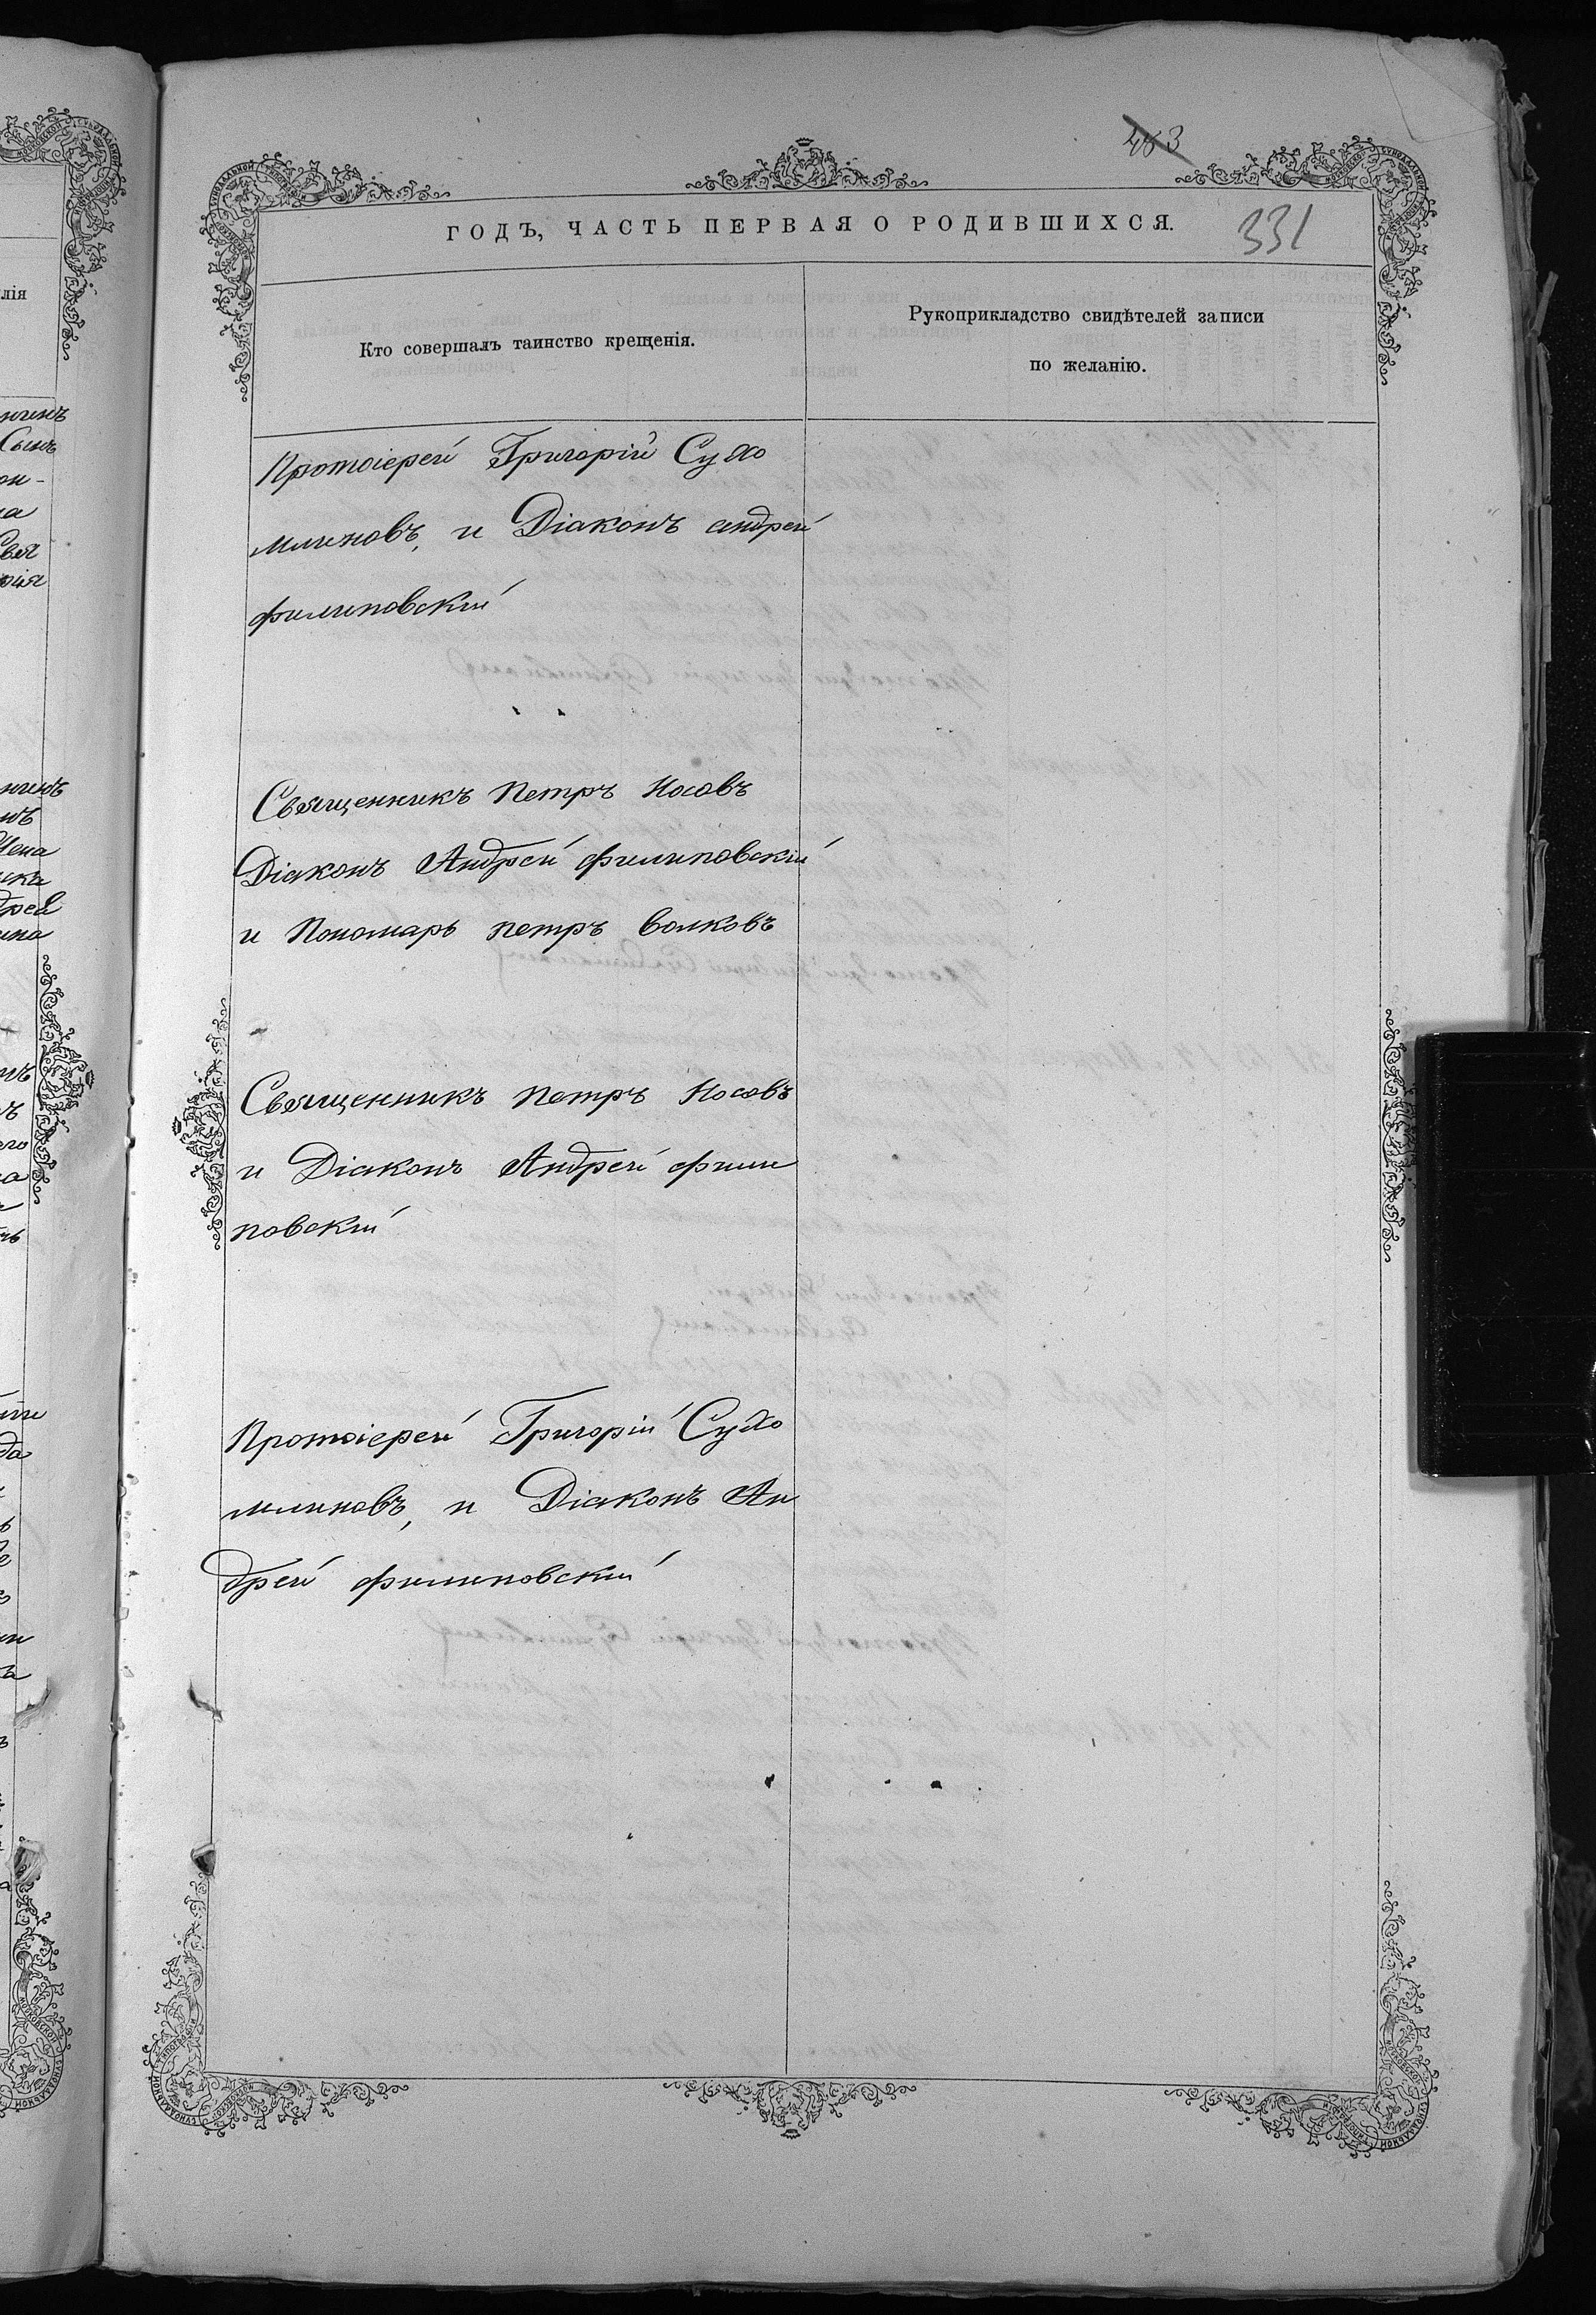 483
ГОДЪ, ЧАСТЬ ПЕРВАЯ О РОДИВШИХСЯ.
331
Кто совершалъ таинство крещенія.
Рукоприкладство свидѣтелей записи
по желанію.
Протоіерей Григорій Сухо
млиновъ, и Діаконъ андрей
филиповскій
Священникъ Петръ Носовъ
Діаконъ Андрей филиповскій
и Пономарь петръ волковъ
Священникъ Петръ Носовъ
и Діаконъ Андрей фили
повскій
Протоіерей Григорій Сухо
млиновъ, и Діаконъ Ан
дрей филиповскій